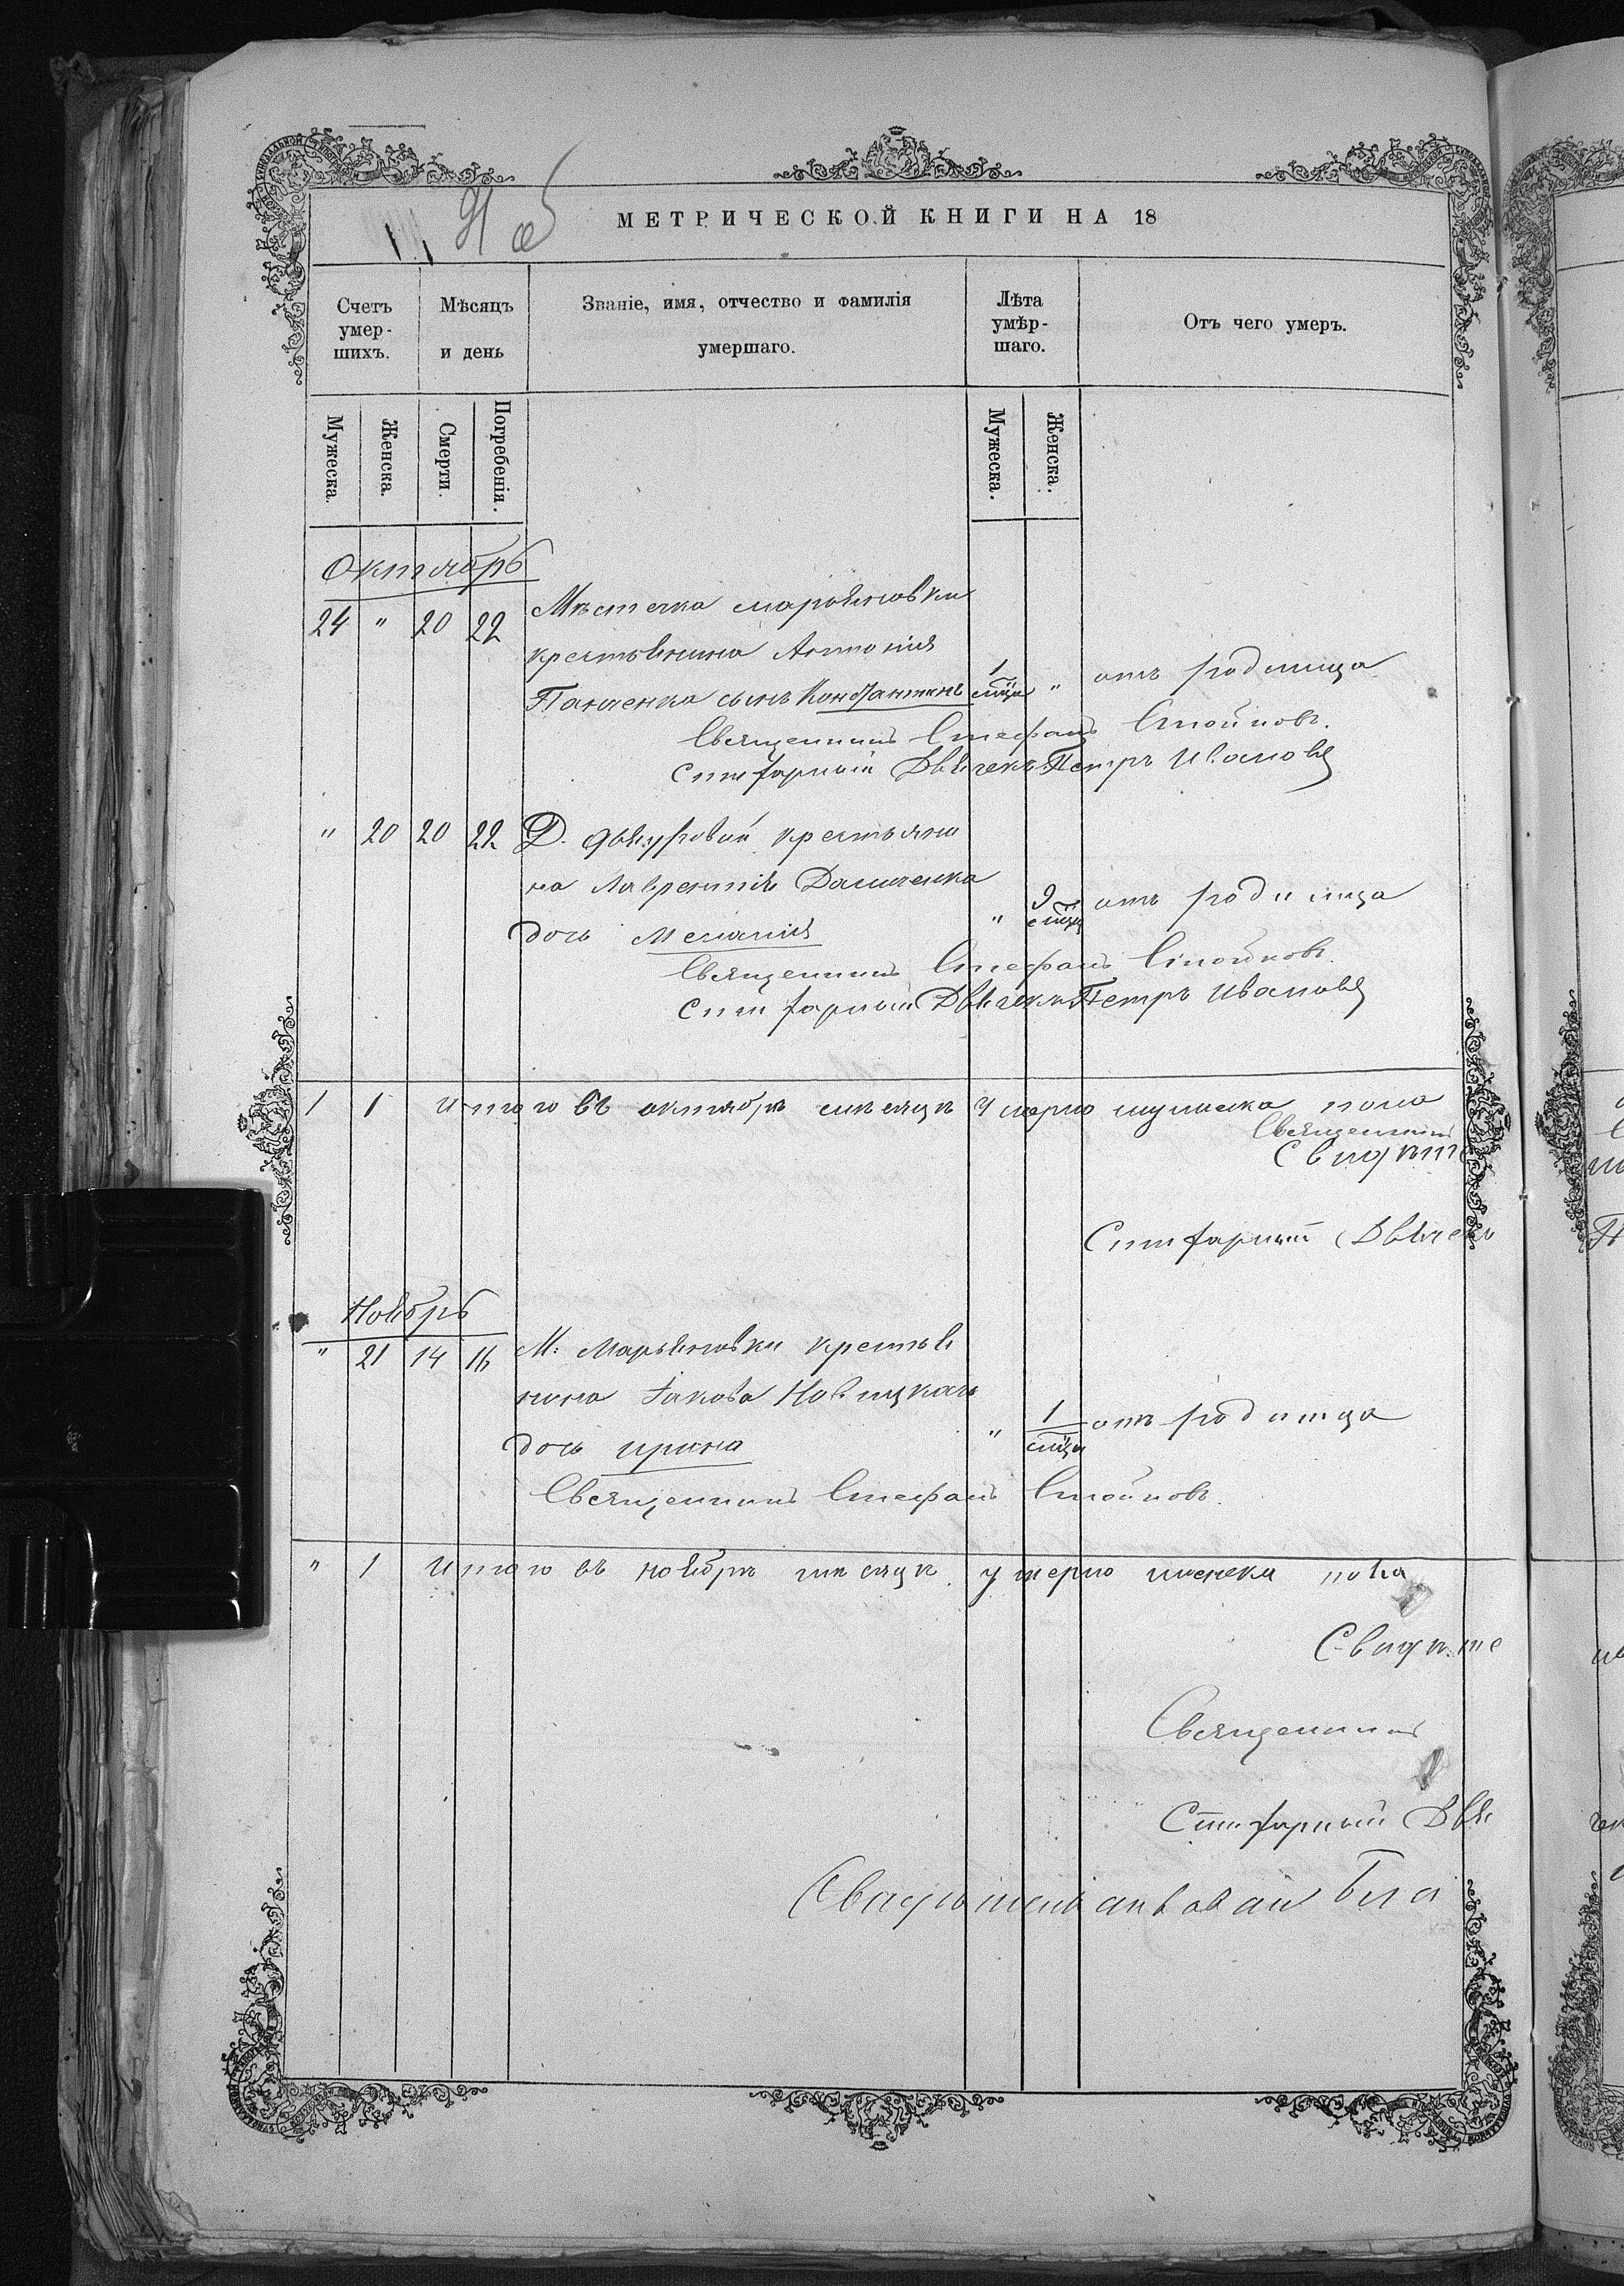 91 об
МЕТРИЧЕСКОЙ КНИГИ НА 18
Счетъ умер- шихъ.
Мѣсяцъ и день
Званіе, имя, отчество и фамилія умершаго.
Лѣта умѣр- шаго.
Отъ чего умеръ.
Мужеска.
Женска.
Смерти.
Погребенія.
Мужеска.
Женска.
Октябрь
24 " 20 22 Мѣстечка Марьяновки
крестьянина Антонія
Панченка сынъ Константинъ 1 мѣся " отъ родимца
Священникъ Стефанъ Стойковъ.
Сти харный Дьячекъ Петръ Ивановъ
" 20 20 22 Д. крестьяни
на Лаврентія Данченка
дочь Меланія " 9 мѣся отъ родимца
Священникъ Стефанъ Стойковъ.
Стихарный Дьячекъ Петръ Ивановъ
1 1 Итого въ октябрѣ мѣсяцѣ умерло мужеска пола
Священникъ
Свидѣте
Стихарный Дьячекъ
Ноябрь
" 21 14 16 М. Марьяновки крестья
нина Іакова Новицкаго
дочь Ирина " 1 мѣся отъ родимца
Священникъ Стефанъ Стойковъ.
" 1 Итого въ ноябрѣ мѣсяцѣ умерло женска пола
Свидѣте
Священникъ
Стихарный Дья
Свидѣтельствовалъ Бла